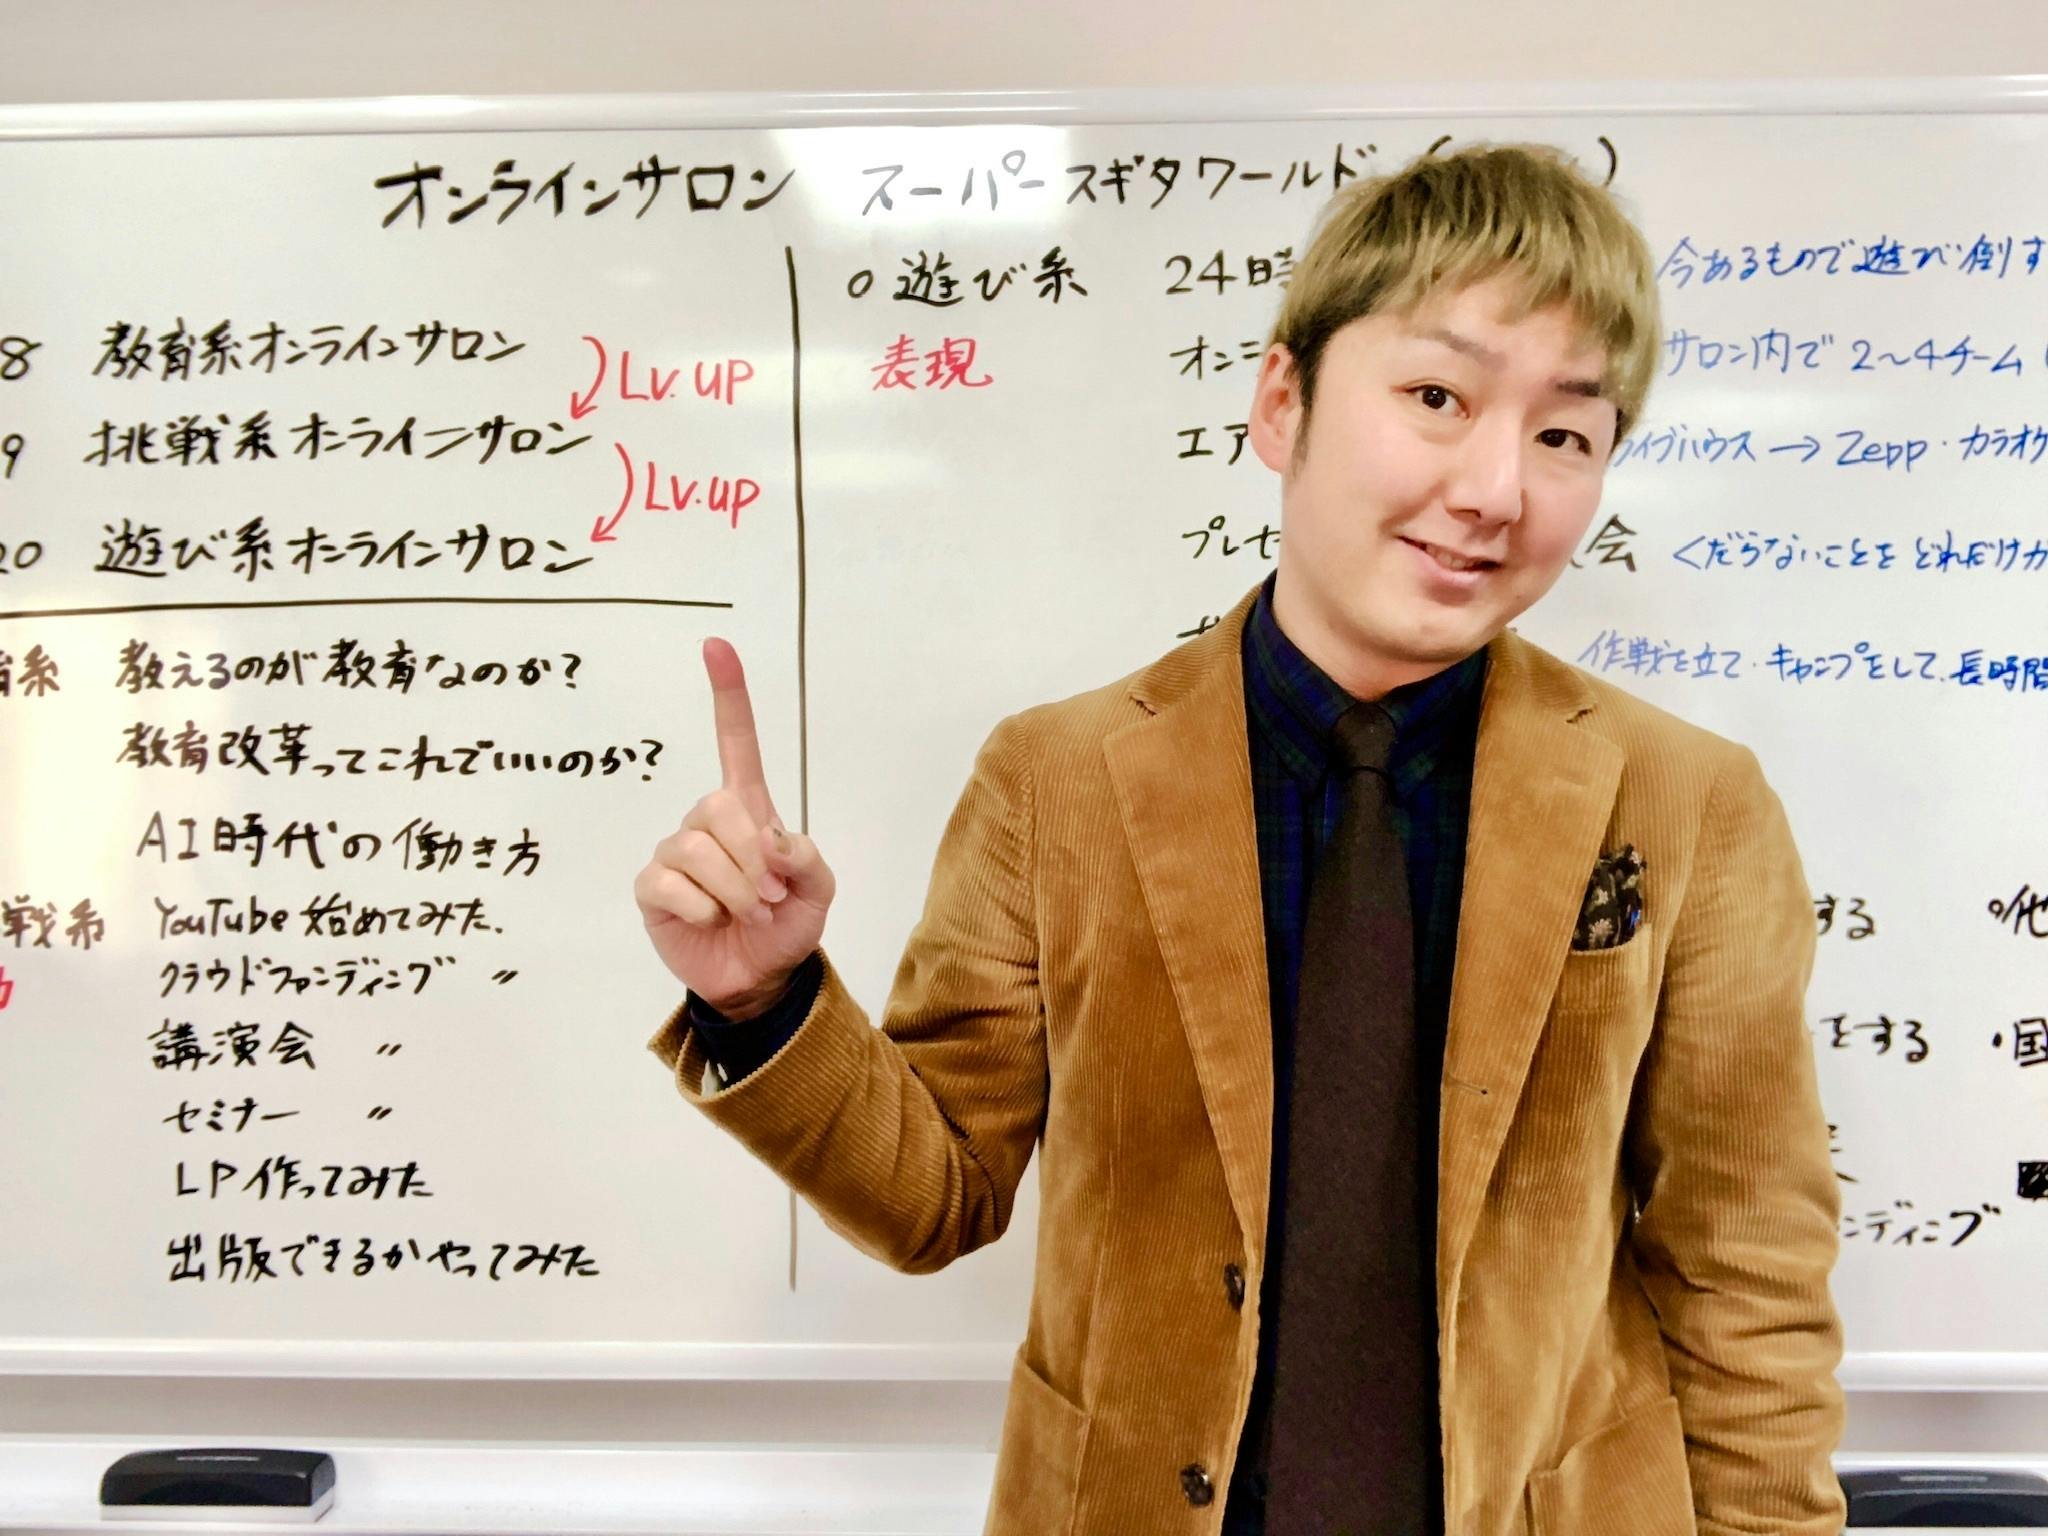 オンラインサロン スーパースギタワールド
8 教育系オンラインサロン
Lv.up
9 挑戦系オンラインサロン
Lv.up
20 遊び系オンラインサロン
育系 教えるのが教育なのか?
教育改革ってこれでいいのか?
AI時代の働き方
戦系 YouTube始めてみた.
クラウドファンディング 〃
講演会 〃
セミナー 〃
LP作ってみた
出版できるかやってみた
○遊び系 24時 今あるもので遊び倒す
表現 オン サロン内で2〜4チーム
エア ライブハウス→Zepp・カラオケ
プレゼ 会 くだらないことをどれだけカ
作戦を立て・キャンプをして、長時間
する
をする ・国
ンディング